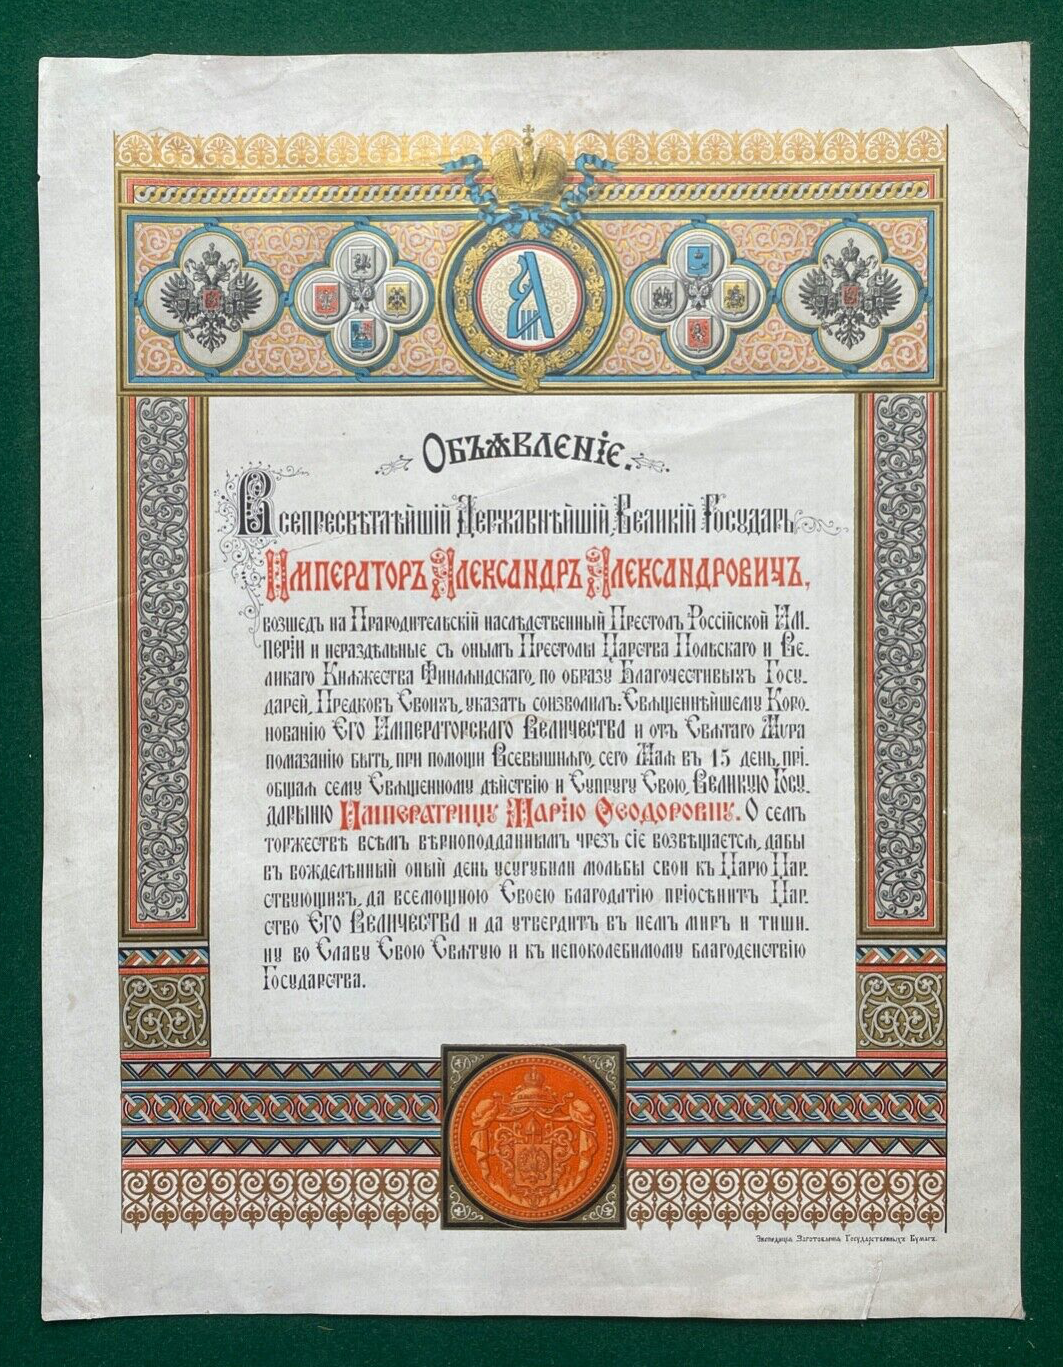 А III
Объѧвленіе.
Всепресвѣтлѣйшій Державнѣйшій Великій Государь
Императоръ Александръ Александровичъ,
возшедъ на Прародительскій наслѣдственный Престолъ Россійской Им-
періи и нераздѣльные съ онымъ Престолы Царства Польскаго и Ве-
ликаго Кнѧжества Финлѧндскаго, по образу Благочестивыхъ Госу-
дарей, Предковъ Своихъ, указать соизволилъ: Свѧщеннѣйшему Коро-
нованію Его Императорскаго Величества и отъ Свѧтаго Мѵра
помазанію быть, при помощи Всевышнѧго, сего Маѧ въ 15 день, прі-
общаѧ сему Свѧщенному дѣйствію и Супругу Свою, Великую Госу-
дарыню Императрицу Марію Ѳеодоровну. О семъ
торжествѣ всѣмъ вѣрноподданнымъ чрезъ сіе возвѣщаетсѧ, дабы
въ вожделѣнный оный день усугубили мольбы свои къ Царю Цар-
ствующихъ, да всемощною Своею благодатію пріосѣнитъ Цар-
ство Его Величества и да утвердитъ въ немъ миръ и тиши-
ну во Славу Свою Свѧтую и къ непоколебимому благоденствію
Государства.
Экспедиція Заготовленія Государственныхъ Бумагъ.